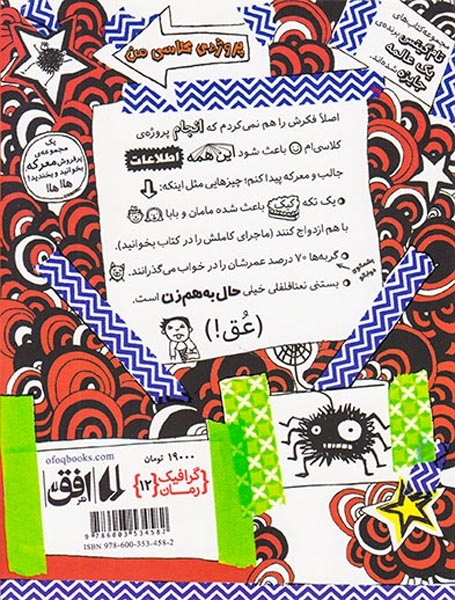 پروژه‌ی کلاسی من
مجموعه کتاب‌های
تام گیتس برنده‌ی
یک عالمه
جایزه شده‌اند.
یک
مجموعه‌ی
پرفروش معرکه
بخوانید و بخندید!
هاها!
اصلاً فکرش را هم نمی‌کردم که انجام پروژه‌ی
کلاسی‌ام باعث شود این همه اطلاعات
جالب و معرکه پیدا کنم؛ چیزهایی مثل اینکه:
• یک تکه باعث شده مامان و بابا
با هم ازدواج کنند (ماجرای کاملش را در کتاب بخوانید).
• گربه‌ها ۷۰ درصد عمرشان را در خواب می‌گذرانند.
پشمالوی
• بستنی نعنافلفلی خیلی حال به هم زن است.
(عُق!)
ofoqbooks.com
نشر افق
۱۹۰۰۰ تومان
گرافیک
رمان
{۱۲}
9 786003 534582
ISBN 978-600-353-458-2